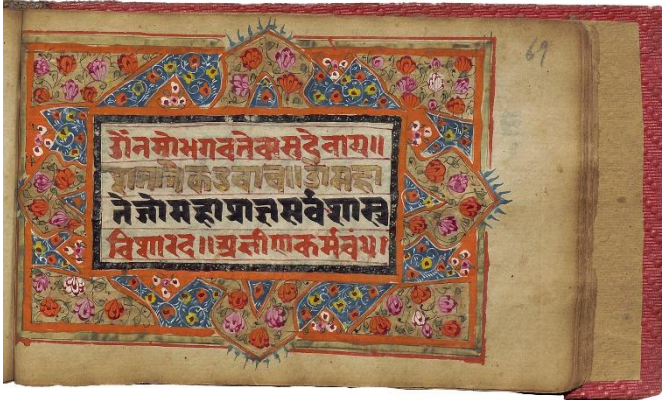 ॐनमोभगवतेवासुदेवाय॥
शतानीकउवाच॥ॐमहा
तेजोमहाप्राज्ञसर्वशास्त्र
विशारद॥अक्षीणकर्मबंध।
69